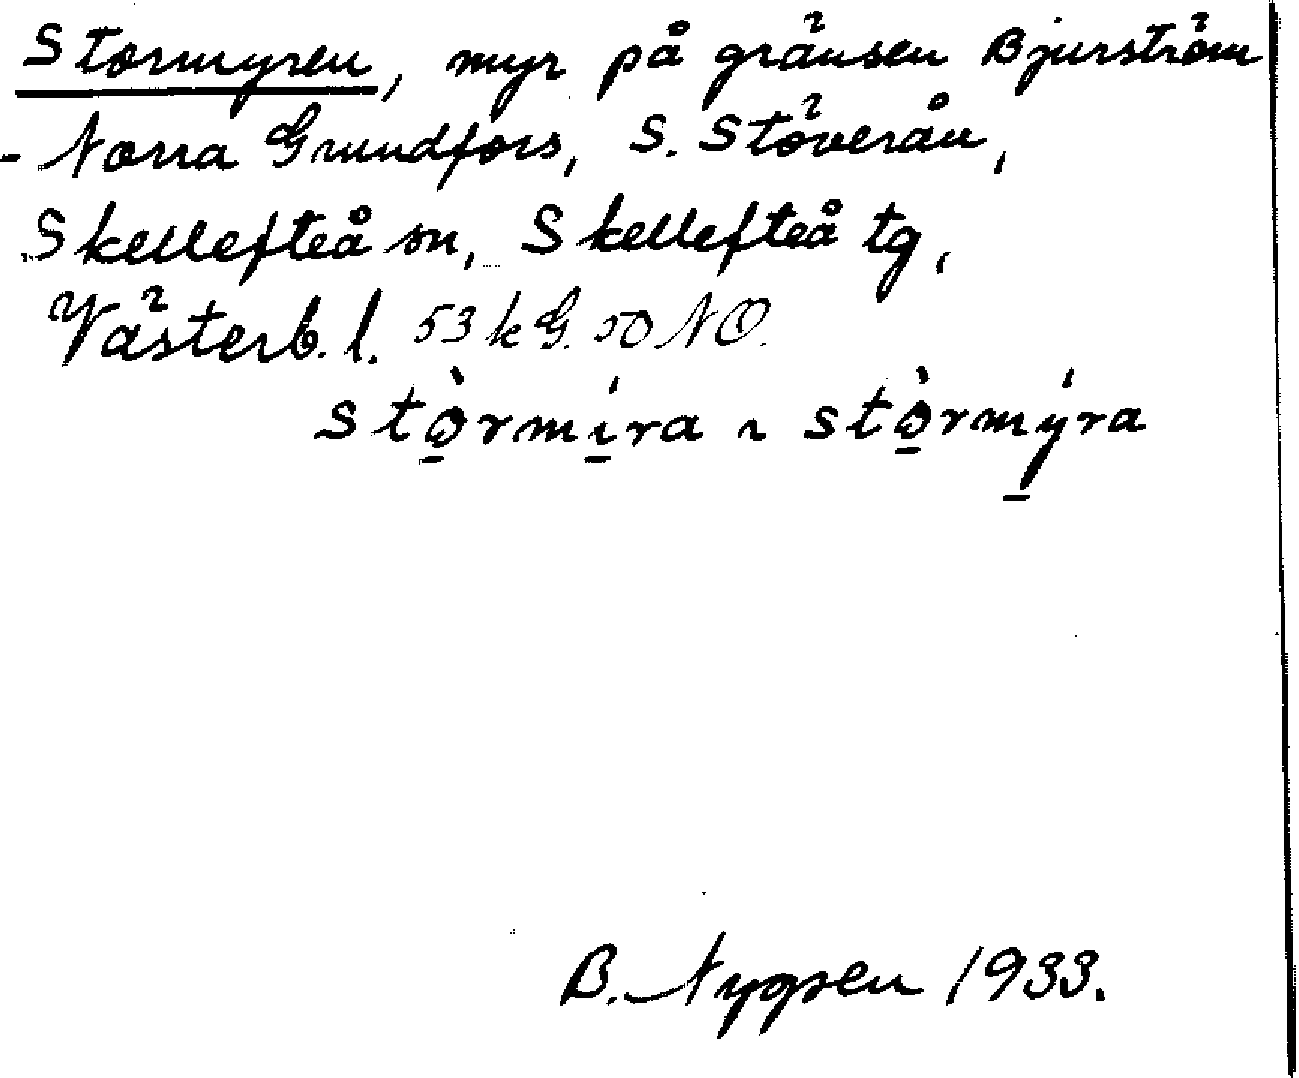 Stormyren, myr på gränsen Bjurström
- Norra Grundfors, S. Stöverån,
Skellefteå sn, Skellefteå tg,
Västerb. l. 53 k G. 50 NO.
stò̱rmi̱ra ~ stò̱rmy̱ra
B. Nygren 1933.